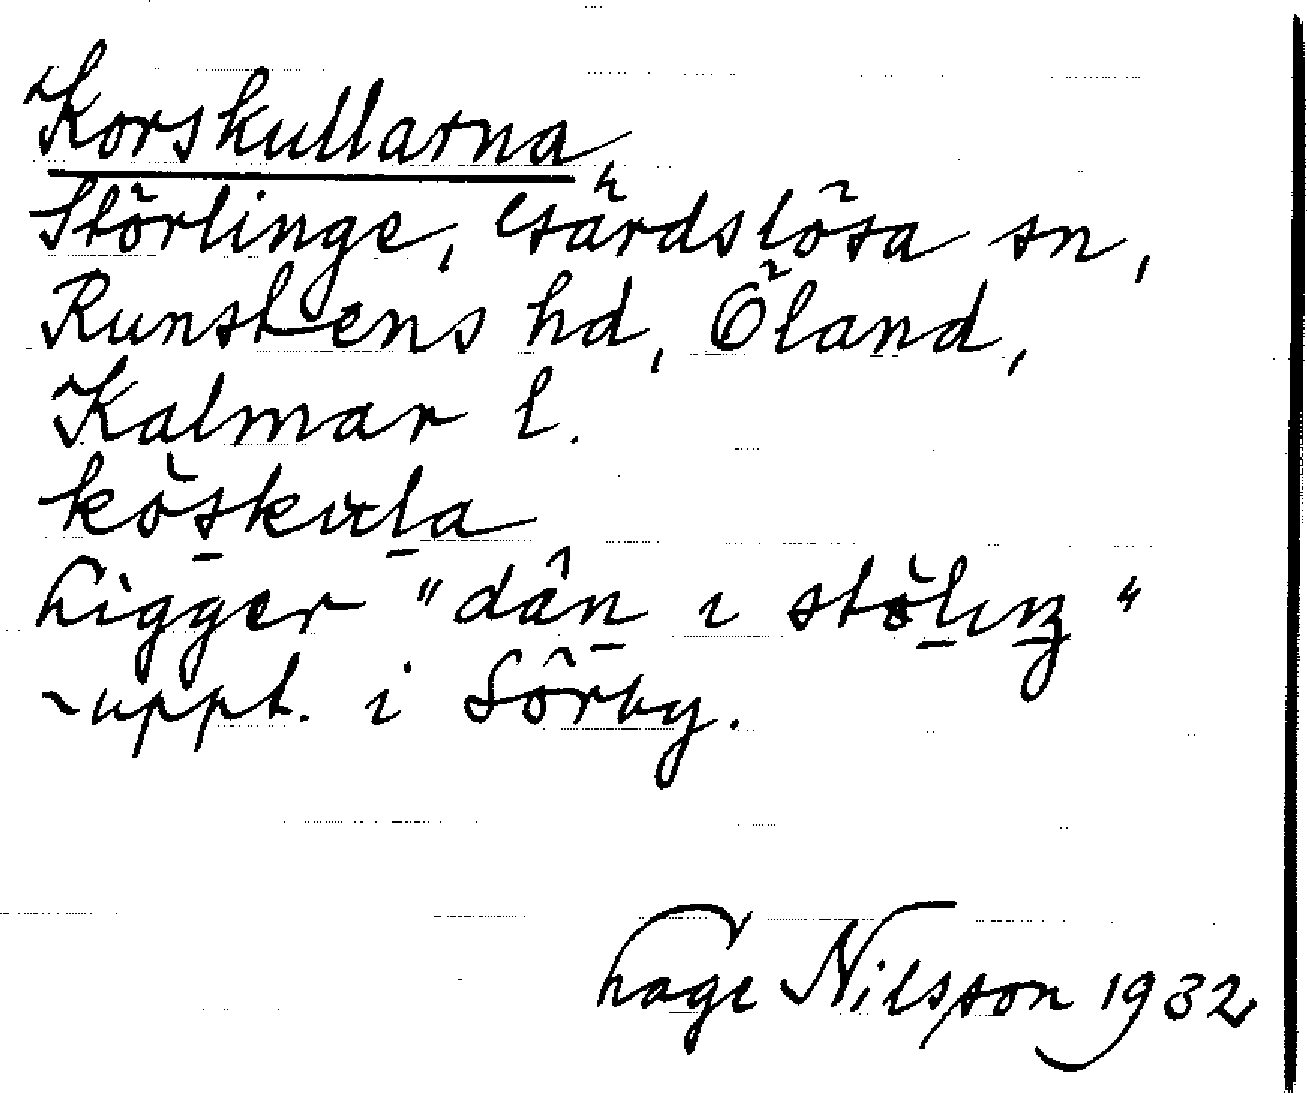 Korskullarna,
Störlinge, Gärdslösa sn,
Runstens hd, Öland,
Kalmar l.
köskula
Ligger "dän i stöliŋ"
~uppt. i Sörby.
Lage Nilsson 1932